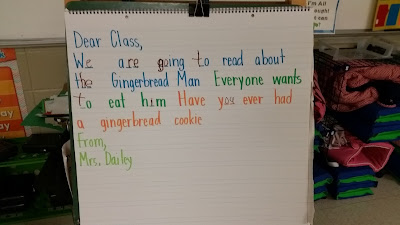 Dear Class,
We are going to read about
the Gingerbread Man Everyone wants
to eat him Have you ever had
a gingerbread cookie
From,
Mrs. Dailey
I'm All